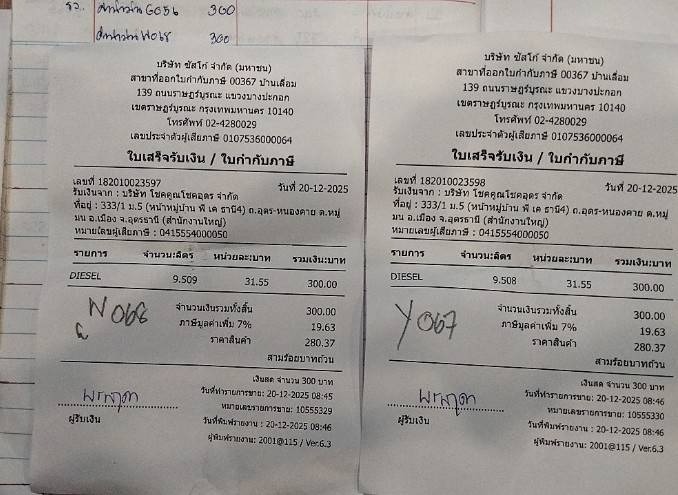 300
300
บริษัท ซัสโก้ จำกัด (มหาชน)
สาขาที่ออกใบกำกับภาษี 00367 ปานเลื่อม
139 ถนนราษฎร์บูรณะ แขวงบางปะกอก
เขตราษฎร์บูรณะ กรุงเทพมหานคร 10140
โทรศัพท์ 02-4280029
เลขประจำตัวผู้เสียภาษี 0107536000064
ใบเสร็จรับเงิน / ใบกำกับภาษี
เลขที่ 182010023597 วันที่ 20-12-2025
รับเงินจาก : บริษัท โชคคูณโชคอุดร จำกัด
ที่อยู่ : 333/1 ม.5 (หน้าหมู่บ้าน พี เค ธานี4) ถ.อุดร-หนองคาย ต.หมู
มน อ.เมือง จ.อุดรธานี (สำนักงานใหญ่)
หมายเลขผู้เสียภาษี : 0415554000050
รายการ จำนวน:ลิตร หน่วยละ:บาท รวมเงิน:บาท
DIESEL 9.509 31.55 300.00
จำนวนเงินรวมทั้งสิ้น 300.00
ภาษีมูลค่าเพิ่ม 7% 19.63
ราคาสินค้า 280.37
N068
สามร้อยบาทถ้วน
เงินสด จำนวน 300 บาท
วันที่ทำรายการขาย: 20-12-2025 08:45
หมายเลขรายการขาย: 10555329
วันที่พิมพ์รายงาน : 20-12-2025 08:46
ผู้พิมพ์รายงาน: 2001@115 / Ver.6.3
ผู้รับเงิน
บริษัท ซัสโก้ จำกัด (มหาชน)
สาขาที่ออกใบกำกับภาษี 00367 ปานเลื่อม
139 ถนนราษฎร์บูรณะ แขวงบางปะกอก
เขตราษฎร์บูรณะ กรุงเทพมหานคร 10140
โทรศัพท์ 02-4280029
เลขประจำตัวผู้เสียภาษี 0107536000064
ใบเสร็จรับเงิน / ใบกำกับภาษี
เลขที่ 182010023598 วันที่ 20-12-2025
รับเงินจาก : บริษัท โชคคูณโชคอุดร จำกัด
ที่อยู่ : 333/1 ม.5 (หน้าหมู่บ้าน พี เค ธานี4) ถ.อุดร-หนองคาย ต.หมู
มน อ.เมือง จ.อุดรธานี (สำนักงานใหญ่)
หมายเลขผู้เสียภาษี : 0415554000050
รายการ จำนวน:ลิตร หน่วยละ:บาท รวมเงิน:บาท
DIESEL 9.508 31.55 300.00
จำนวนเงินรวมทั้งสิ้น 300.00
ภาษีมูลค่าเพิ่ม 7% 19.63
ราคาสินค้า 280.37
Y067
สามร้อยบาทถ้วน
เงินสด จำนวน 300 บาท
วันที่ทำรายการขาย: 20-12-2025 08:46
หมายเลขรายการขาย: 10555330
วันที่พิมพ์รายงาน : 20-12-2025 08:46
ผู้พิมพ์รายงาน: 2001@115 / Ver.6.3
ผู้รับเงิน